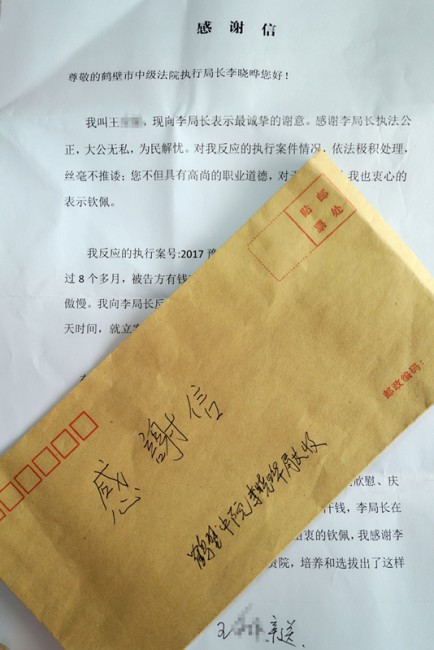 感 谢 信
尊敬的鹤壁市中级法院执行局长李晓晔您好！
我叫王，现向李局长表示最诚挚的谢意。感谢李局长执法公
正，大公无私，为民解忧。对我反应的执行案件情况，依法极积处理，
丝毫不推诿；您不但具有高尚的职业道德，对 我也衷心的
表示钦佩。
我反应的执行案号:2017 豫
过 8 个多月，被告方有钱
傲慢。我向李局长反
天时间，就立案
贴 邮
票 处
邮政编码：
感 謝 信
鹤壁中院李晓华局长收
欣慰、庆
汗钱，李局长在
由衷的钦佩，我感谢李
贵院，培养和选拔出了这样
王 亲送